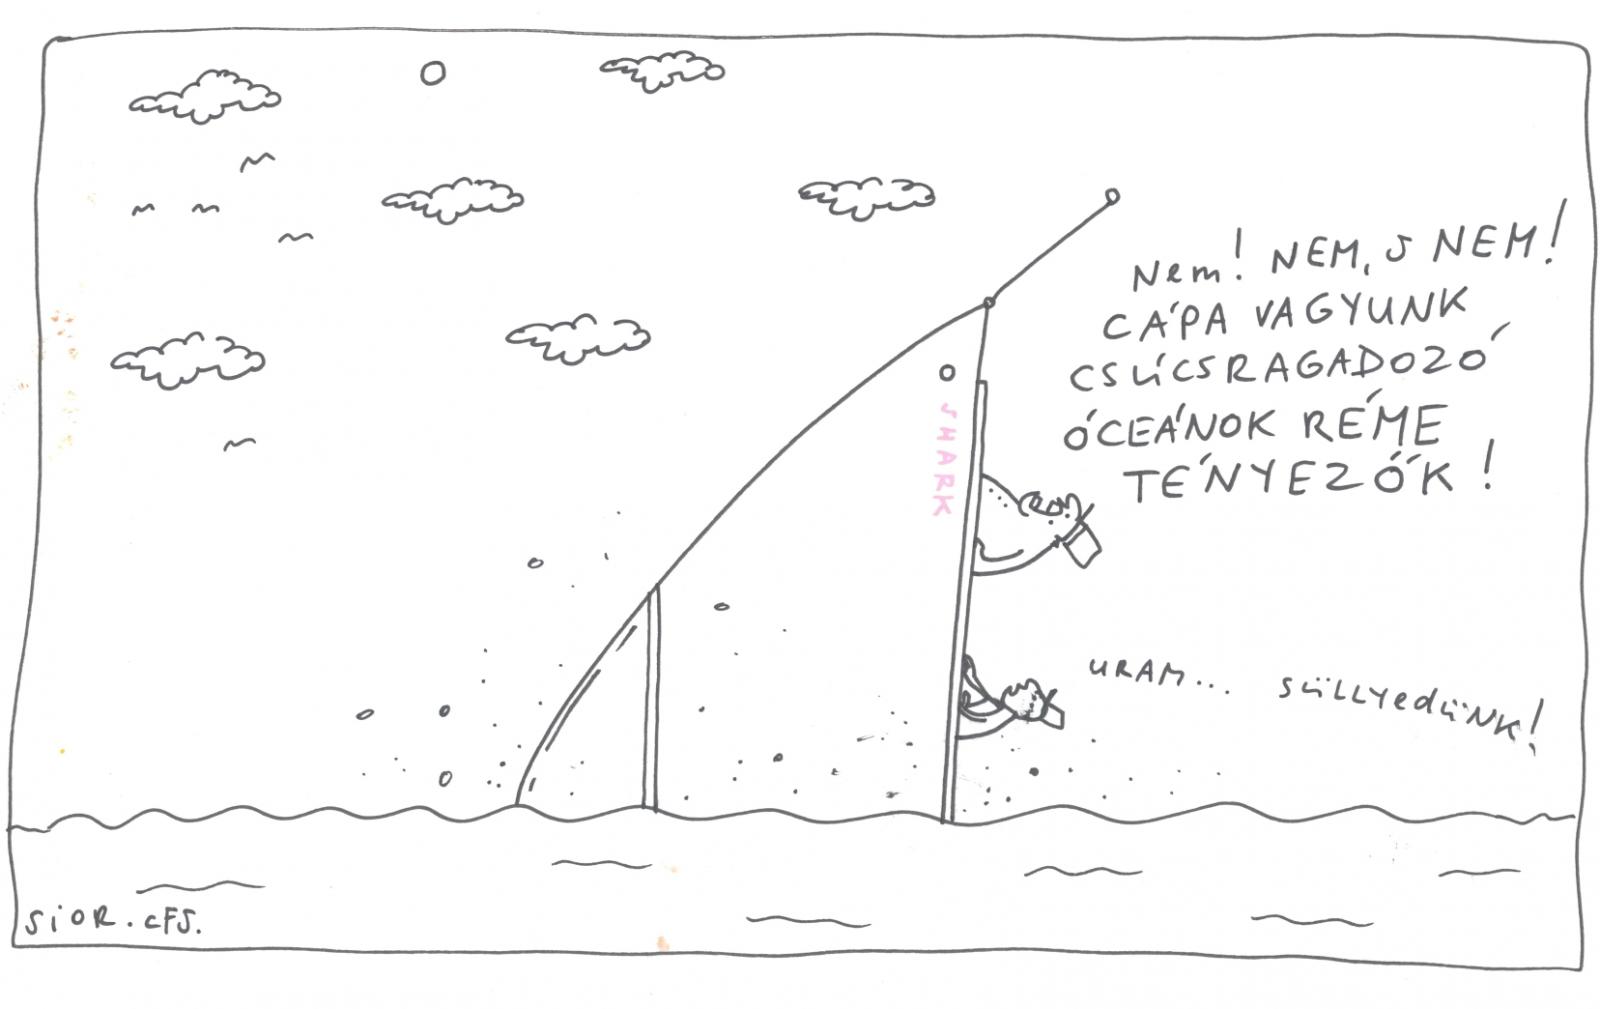 Nem! NEM, S NEM!
CÁPA VAGYUNK
CSÚCSRAGADOZÓ
ÓCEÁNOK RÉME
TÉNYEZŐK!
SHARK
URAM... SÜLLYEDÜNK!
SiOR.CFS.